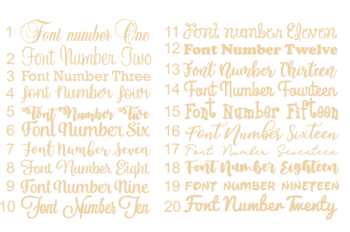 1 Font number One
2 Font Number Two
3 Font Number Three
4 font Number four
5 Font Number Five
6 Font Number Six
7 Font Number Seven
8 Font Number Eight
9 Font Number Nine
10 Font Number Ten
11 Font number Eleven
12 Font Number Twelve
13 Font Number Thirteen
14 Font Number Fourteen
15 Font Number Fifteen
16 Font Number Sixteen
17 Font Number Seventeen
18 Font Number Eighteen
19 FONT NUMBER NINETEEN
20 Font Number Twenty